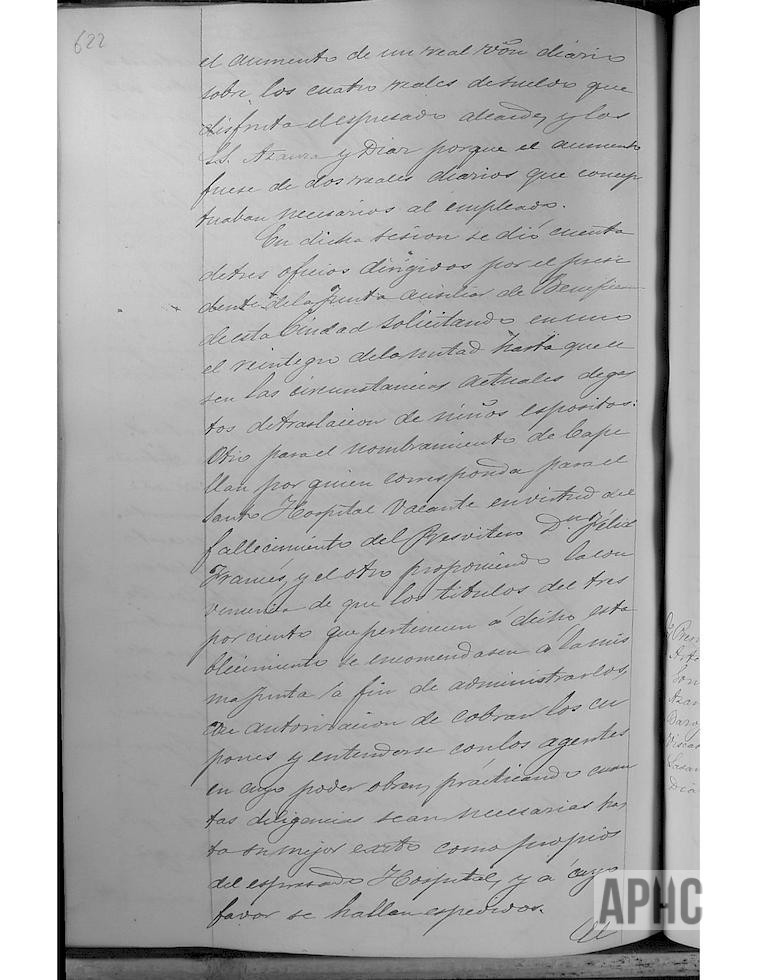 622
el aumento de un real vón diario
sobre los cuatro reales de sueldo que
disfruta el espresado alcaide, y los
S.S. Azaura y Diaz porque el aumento
fuese de dos reales diarios que concep
tuaban necesarios al empleado.
En dicha sesion se dió cuenta
de tres oficios dirigidos por el presi
dente de la Junta Auxiliar de Benefi
de esta Ciudad solicitando en uno
el reintegro de la mitad hasta que ce
sen las circunstancias actuales de gas
tos de traslacion de niños espositos:
Otro para el nombramiento de Cape
llan por quien corresponda para el
Santo Hospital vacante en virtud del
fallecimiento del Presvitero Dn Félix
Francés, y el otro proponiendo la con
veniencia de que los titulos del tres
por ciento que pertenecen á dicho esta
blecimiento se encomendasen á la mis
ma Junta á fin de administrarlos,
autorizacion de cobrar los cu
pones y entenderse con los agentes
en cuyo poder obran, prácticando cuan
tas diligencias sean necesarias has
ta su mejor exito como propios
del espresado Hospital, y á cuyo
favor se hallan espedidos.
El
APHC
Azan
Diaz